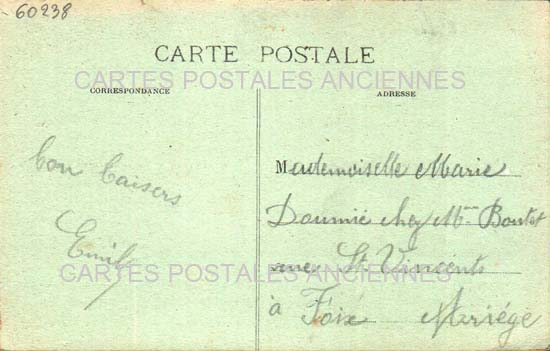 60238
CARTE POSTALE
CARTES POSTALES ANCIENNES
CORRESPONDANCE
ADRESSE
bon baisers
Emily
Mademoiselle Marie
Doumié chez Mme Boutet
rue St Vincents
CARTES POSTALES ANCIENNES
à Foix Ariége